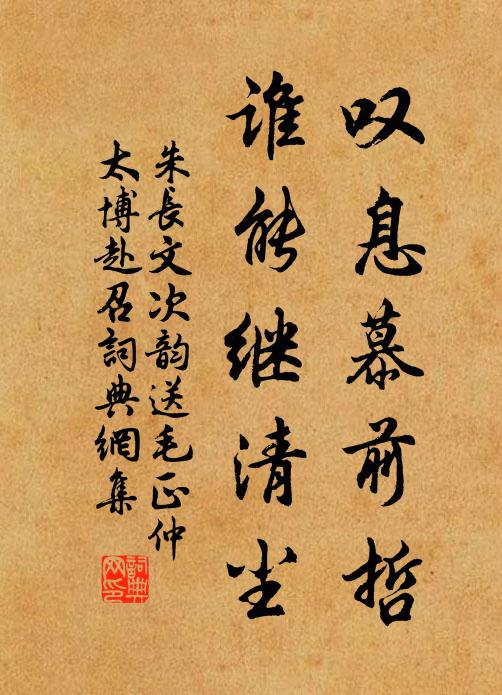 叹息慕前哲
谁能继清尘
朱長文次韵送毛正仲
太博赴召詞典網集
詞典网印